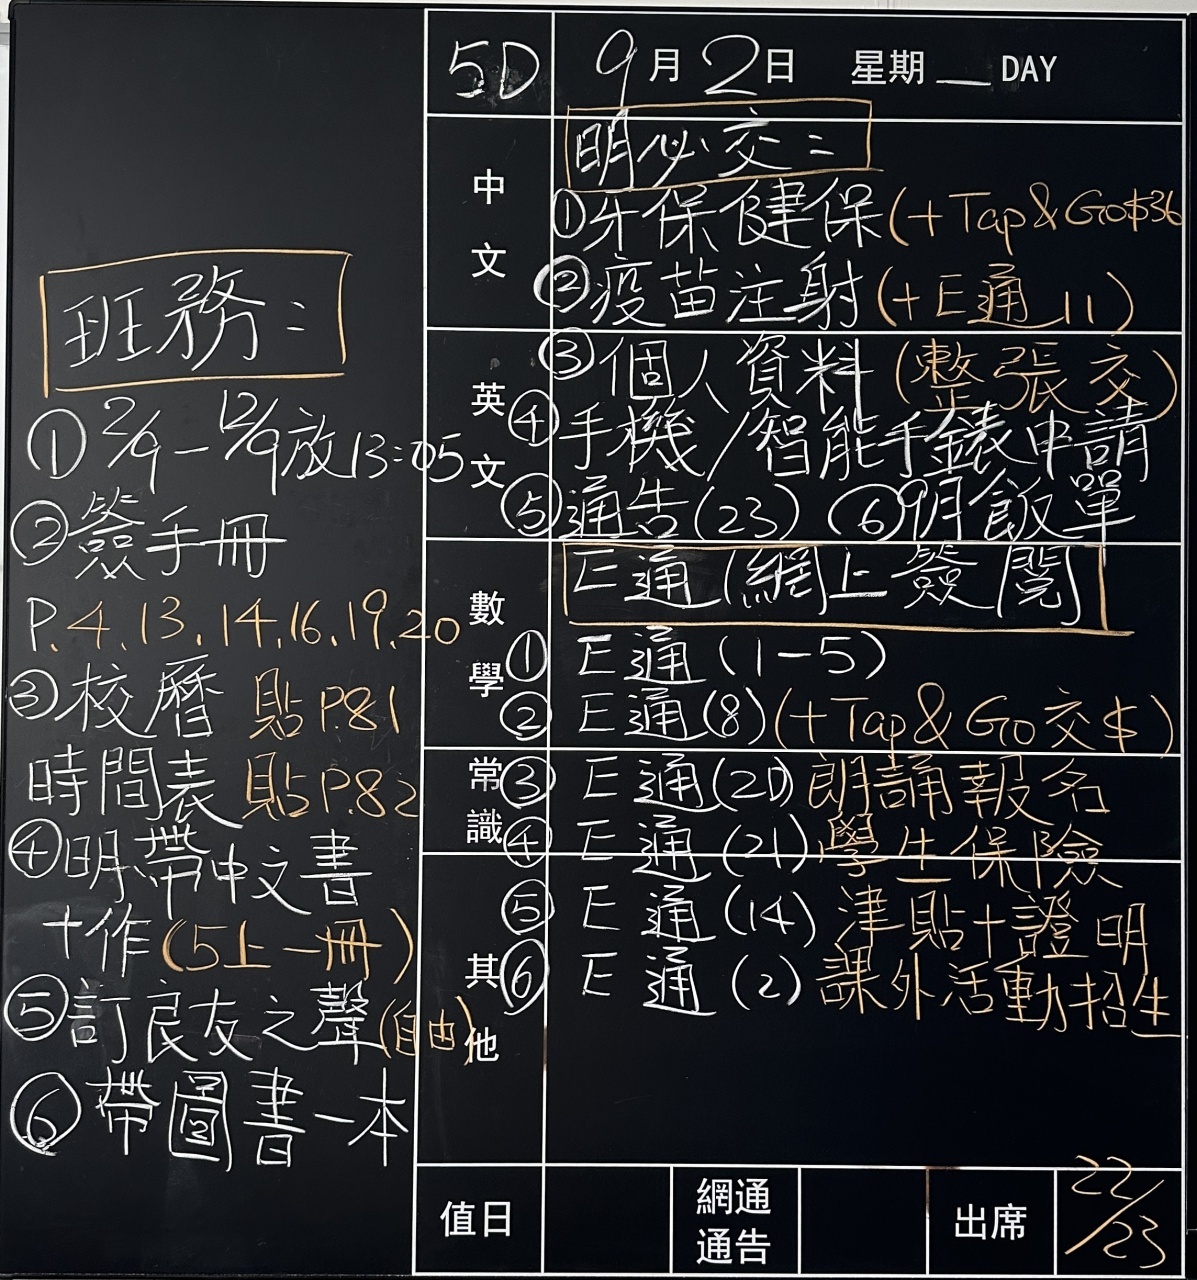 班務：
① 2/9 — 12/9放13:05
② 簽手冊
P.4.13.14.16.19.20
③ 校曆 貼P.81
時間表 貼P.82
④ 明帶中文書
+作(5上一冊)
⑤ 訂良友之聲(自由)
⑥ 帶圖書一本
5D 9月2日 星期 __ DAY
中文
明必交：
① 牙保健保(+Tap&Go$36
② 疫苗注射(+E通 11)
英文
③ 個人資料(整張交)
④ 手機/智能手錶申請
⑤ 通告(23) ⑥ 9月飯單
數學
E通(網上簽閱)
① E通(1-5)
② E通(8)(+Tap&Go交$)
常識
③ E通(20) 朗誦報名
④ E通(21) 學生保險
其他
⑤ E通(14) 津貼+證明
⑥ E通(2) 課外活動招生
值日 網通通告 出席 22/23